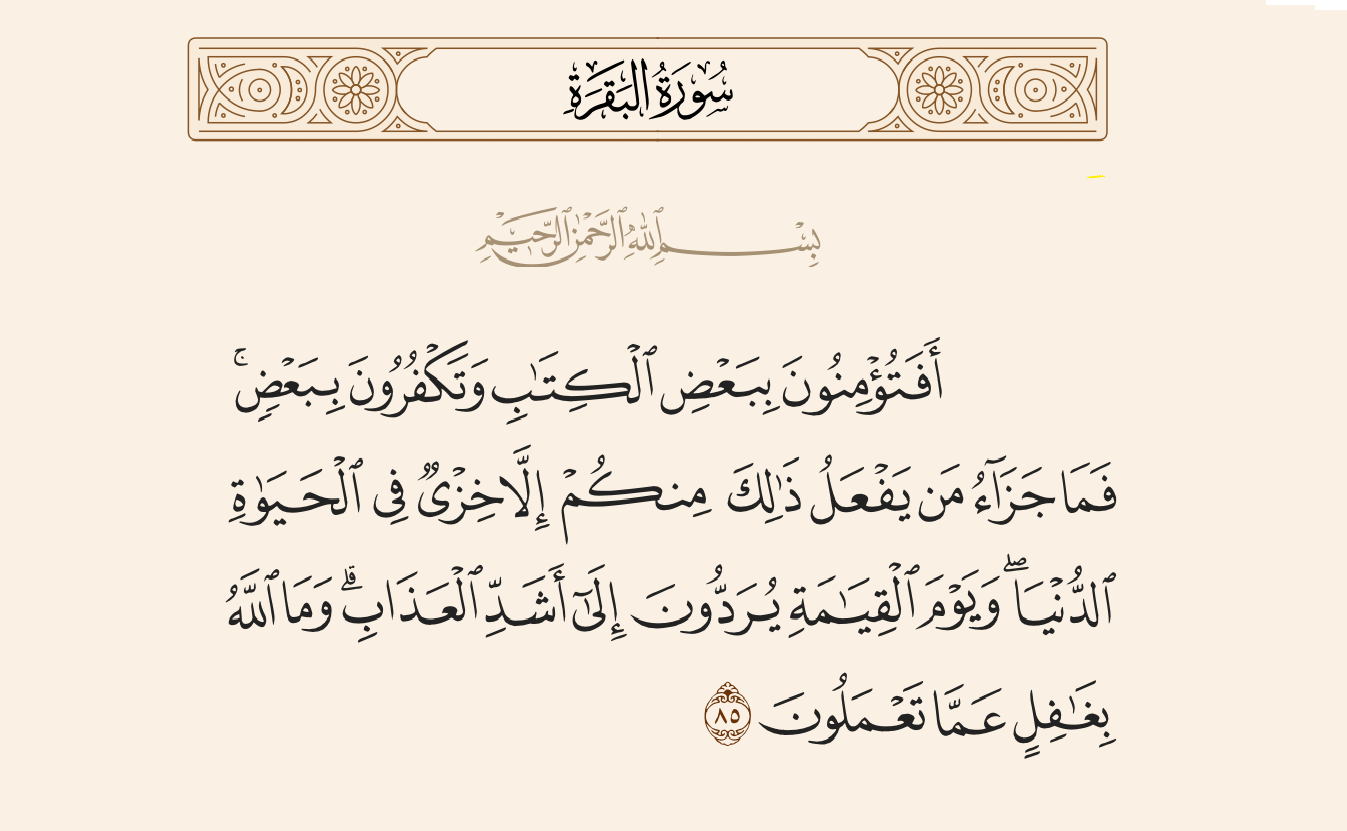 سُورَةُ البَقَرَةِ
بِسْمِ ٱللَّهِ ٱلرَّحْمَٰنِ ٱلرَّحِيمِ
أَفَتُؤْمِنُونَ بِبَعْضِ ٱلْكِتَٰبِ وَتَكْفُرُونَ بِبَعْضٍۚ
فَمَا جَزَآءُ مَن يَفْعَلُ ذَٰلِكَ مِنكُمْ إِلَّا خِزْىٌ فِى ٱلْحَيَوٰةِ
ٱلدُّنْيَاۖ وَيَوْمَ ٱلْقِيَٰمَةِ يُرَدُّونَ إِلَىٰٓ أَشَدِّ ٱلْعَذَابِۗ وَمَا ٱللَّهُ
بِغَٰفِلٍ عَمَّا تَعْمَلُونَ ٨٥